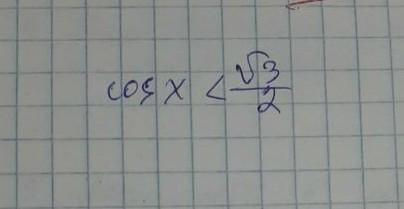 cos x < √3/2